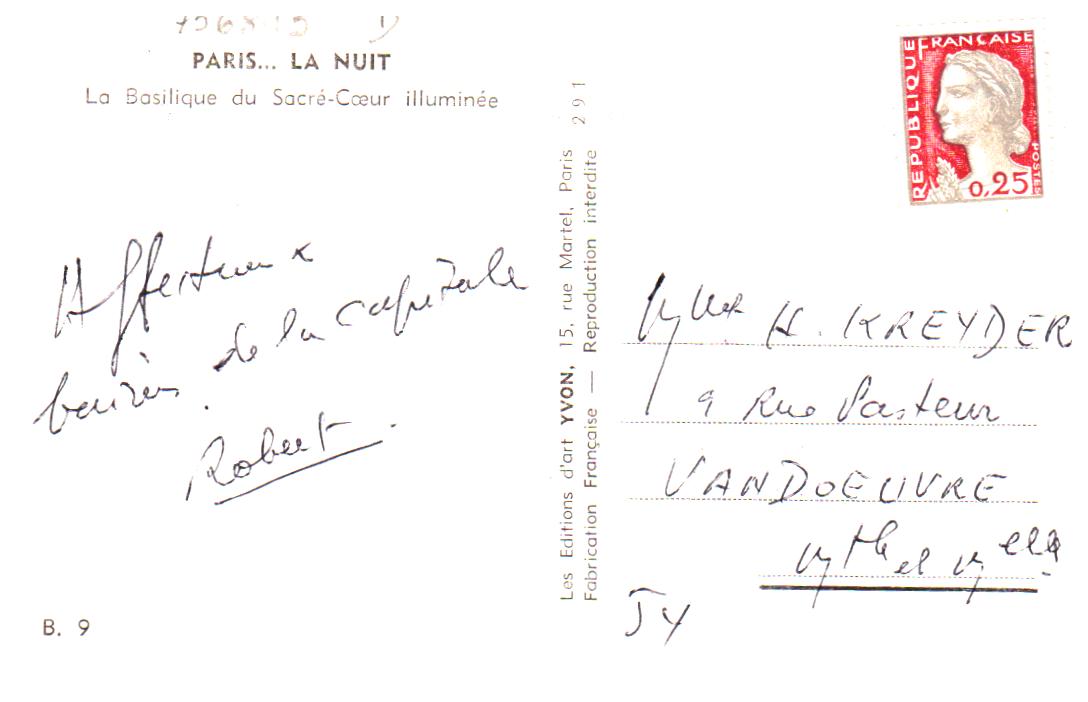 PARIS... LA NUIT
La Basilique du Sacré-Cœur illuminée
Affectueux
baisers de la capitale
Robert.
B. 9
Les Editions d'art YVON, 15, rue Martel, Paris 291
Fabrication Française — Reproduction interdite
REPUBLIQUE FRANÇAISE
POSTES
0,25
H. KREYDER
9 Rue Pasteur
VANDOEUVRE
Mthe et Melle
54